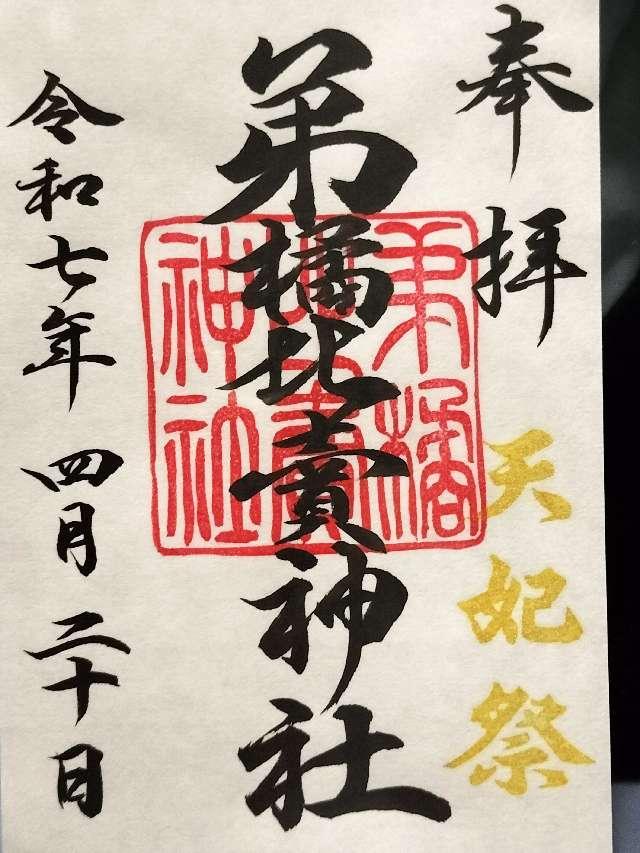 奉拝
天妃祭
弟橘比賣神社
弟橘比賣神社
令和七年 四月 二十日